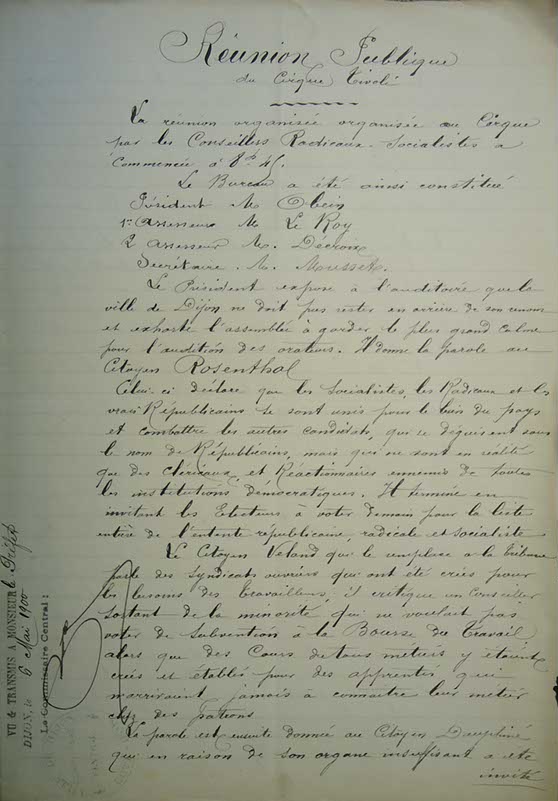 Réunion Publique
du Cirque Tivoli
La réunion organisée organisée au Cirque
par les Conseillers Radicaux-Socialistes a
Commencée à 8h 45.
Le Bureau a été ainsi constitué
Président M.
1er Assesseur M. Le Roy
2 Assesseur M. Décroix
Secrétaire. M. Mousset.
Le Président expose à l'auditoire que la
ville de Dijon ne doit pas rester en arrière de son renom
et exhorte l'assemblée à garder le plus grand calme
pour l'audition des orateurs. Il donne la parole au
Citoyen Rosenthal
Celui-ci déclare que les Socialistes, les Radicaux et les
vrais Républicains se sont unis pour le bien du pays
et combattre les autres candidats, qui se déguisent sous
le nom de Républicains, mais qui ne sont en réalité
que des Cléricaux et Réactionnaires ennemis de toutes
les institutions démocratiques. Il termine en
invitant les Electeurs à voter demain pour la liste
entière de l'entente républicaine, radicale et socialiste
Le Citoyen qui le remplace a la tribune
parle des Syndicats ouvriers qui ont été créés pour
les besoins des travailleurs, il critique un Conseiller
sortant de la minorité qui ne voulait pas
voter de Subvention à la Bourse du Travail
alors que des Cours de tous metiers y étaient
créés et établis pour des apprentis qui
n'arrivaient jamais à connaitre leur metier
chez des patrons
La parole est ensuite donnée au Citoyen Dauphiné
qui en raison de son organe insuffisant a été
invité
VU & TRANSMIS A MONSIEUR le Préfet
DIJON, le 6 Mai 1900
Le Commissaire Central: